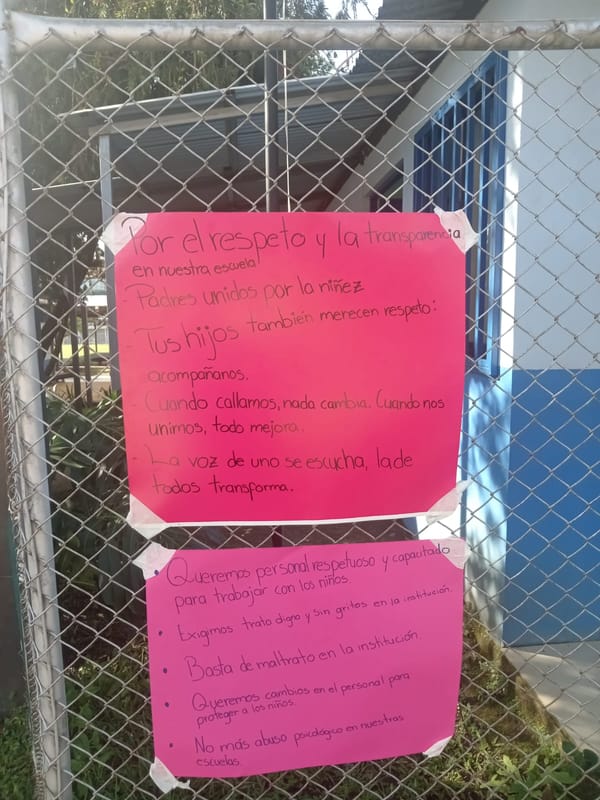 Por el respeto y la transparencia
en nuestra escuela
- Padres unidos por la niñez
- Tus hijos también merecen respeto:
acompañanos.
- Cuando callamos, nada cambia. Cuando nos
unimos, todo mejora.
- La voz de uno se escucha, la de
todos transforma.
• Queremos personal respetuoso y capacitado
para trabajar con los niños.
• Exigimos trato digno y sin gritos en la institución.
• Basta de maltrato en la institución.
• Queremos cambios en el personal para
proteger a los niños.
• No más abuso psicológico en nuestras
escuelas.